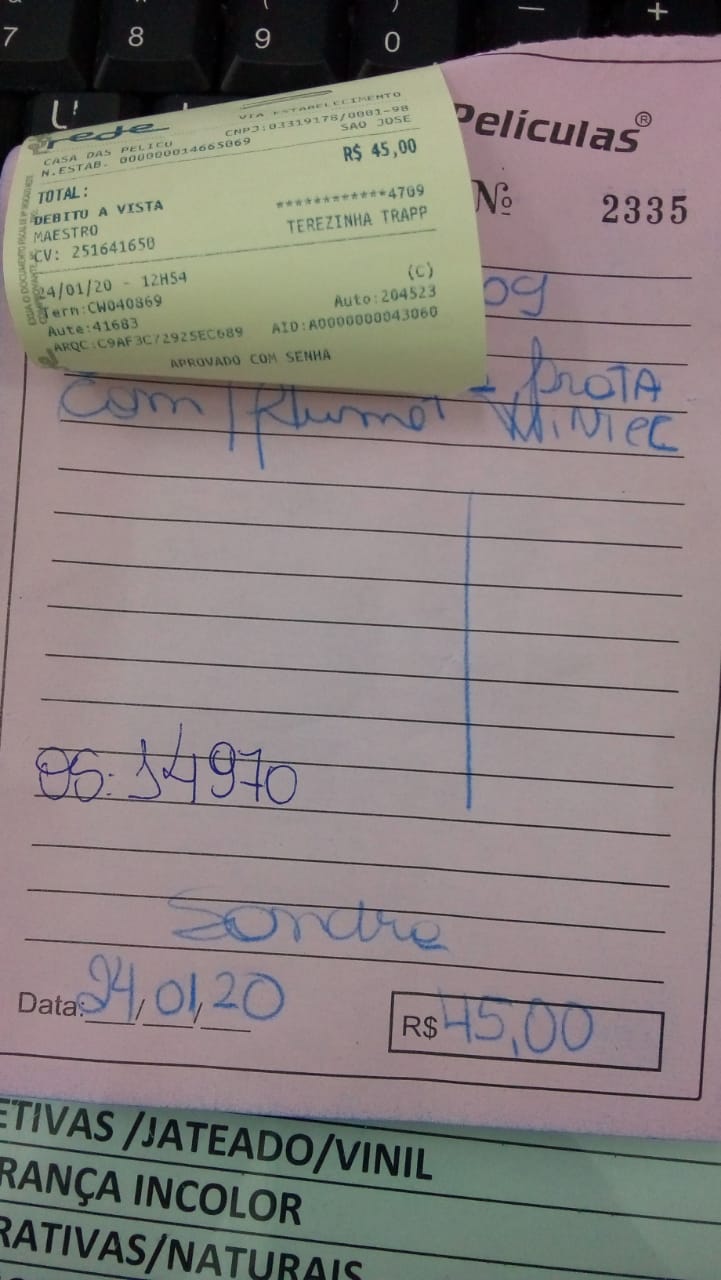 7 8 9 0 - +
U
rede
VIA ESTABELECIMENTO
CNPJ:03319178/0001-98
CASA DAS PELICU SAO JOSE
N.ESTAB. 000000014665069
R$ 45,00
TOTAL:
DEBITO A VISTA
MAESTRO ************4709
CV: 251641650 TEREZINHA TRAPP
24/01/20 - 12H54 (C)
Term:CW040869 Auto:204523
Aute:41683 AID:A0000000043060
ARQC:C9AF3C72925EC689
APROVADO COM SENHA
Películas®
Nº 2335
09
com prata
OS: 14970
Sandra
Data: 24/01/20
R$ 45,00
ETIVAS /JATEADO/VINIL
RANÇA INCOLOR
RATIVAS/NATURAIS